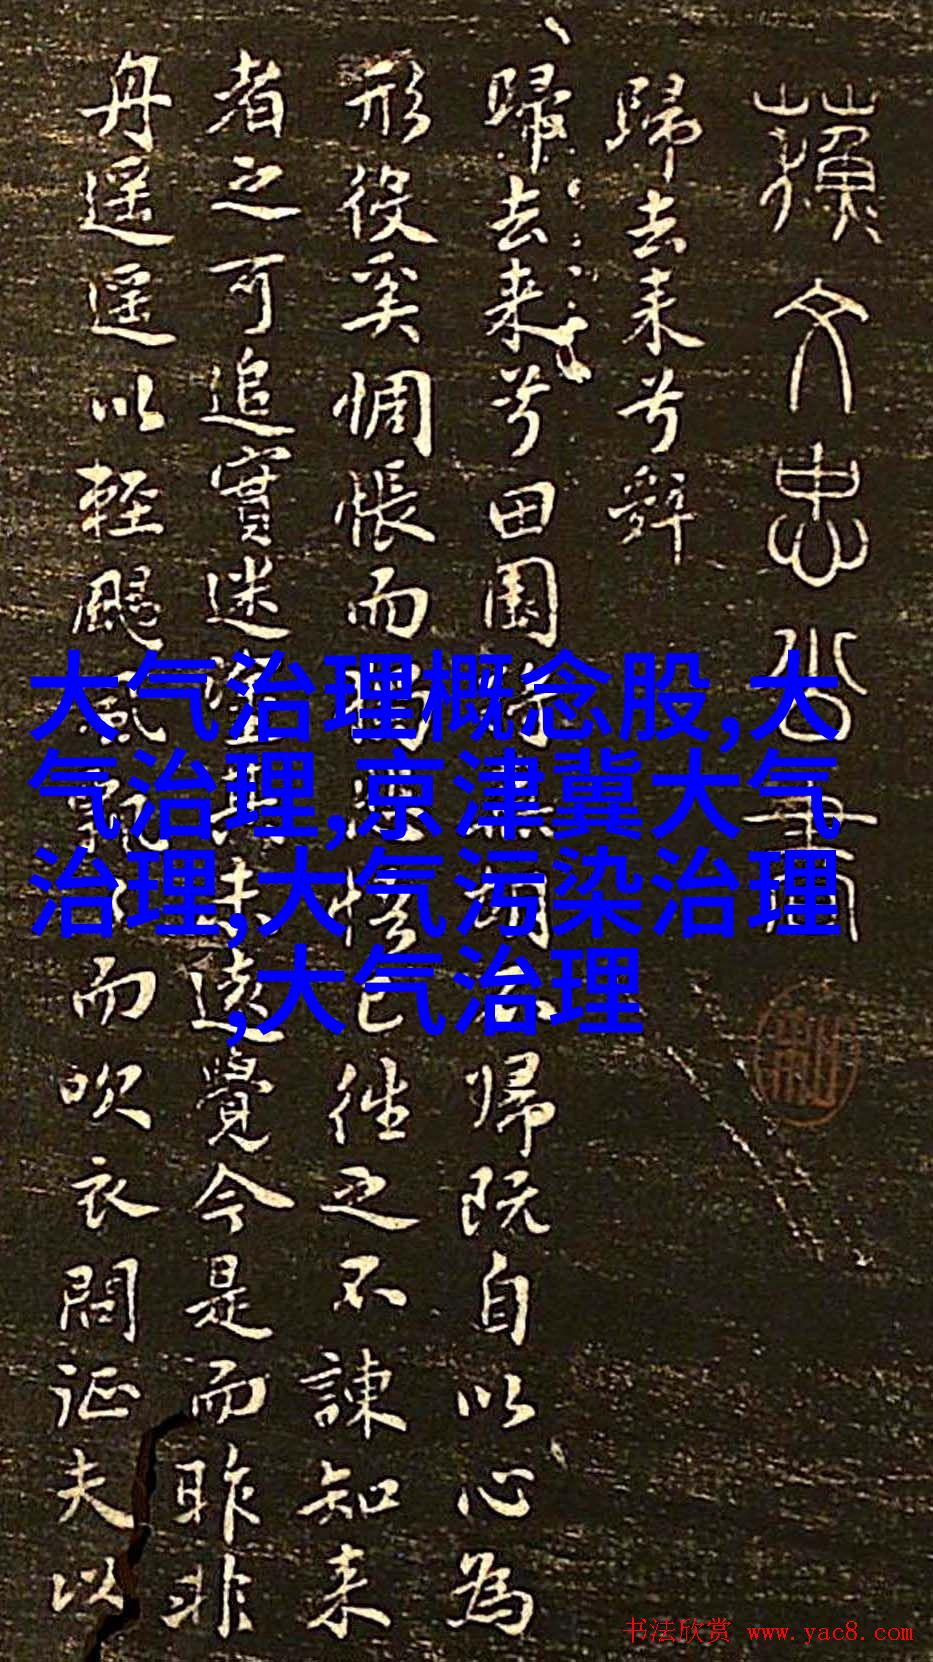 蘓文忠公書
歸去来兮辭
歸去来兮田園將蕪胡不歸既自以心為
形役奚惆悵而獨悲悟已往之不諫知来
者之可追實迷塗其未遠覺今是而昨非
舟遥遥以輕颺風飄飄而吹衣問征夫以
大气治理概念股,大
气治理,京津冀大气
治理,大气污染治理
,大气治理
书法欣赏 www.yac8.com